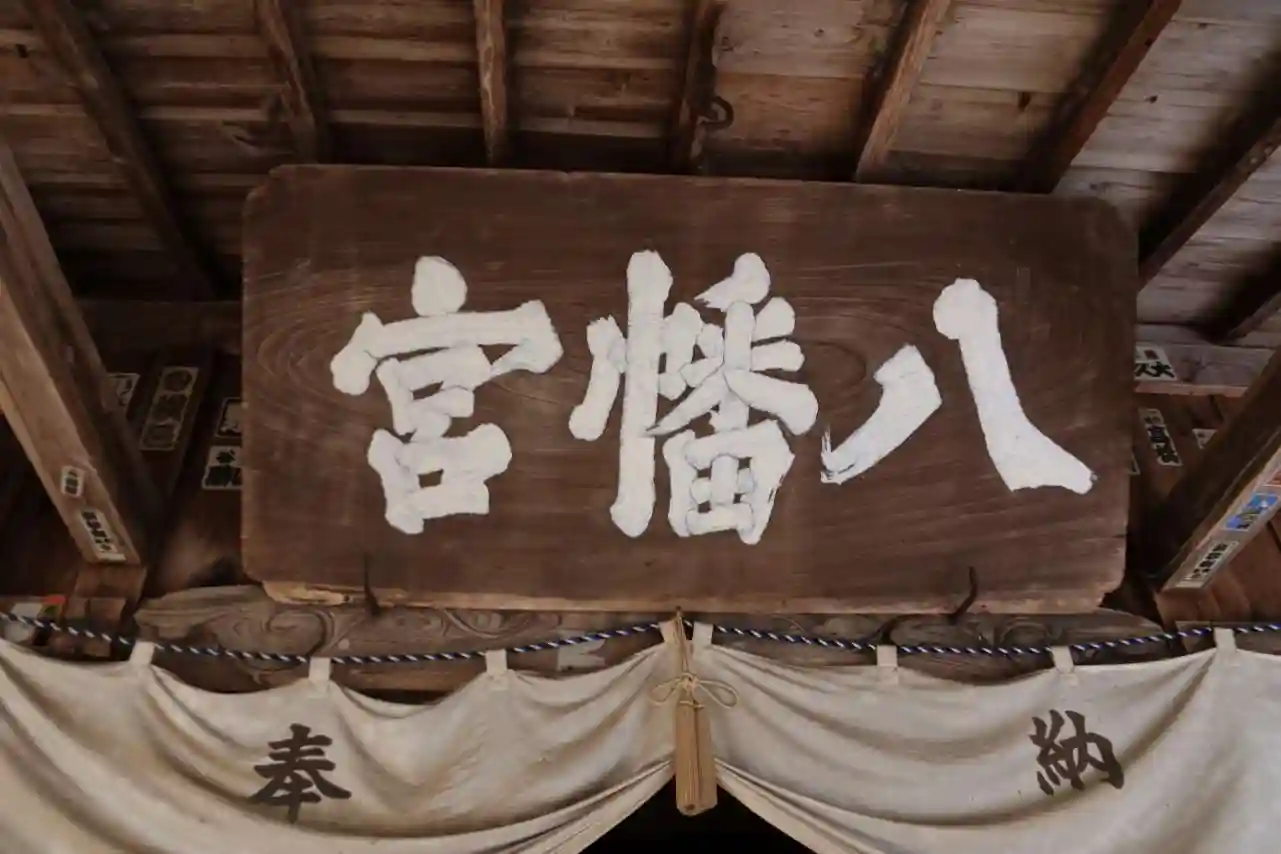 八幡宮
奉納